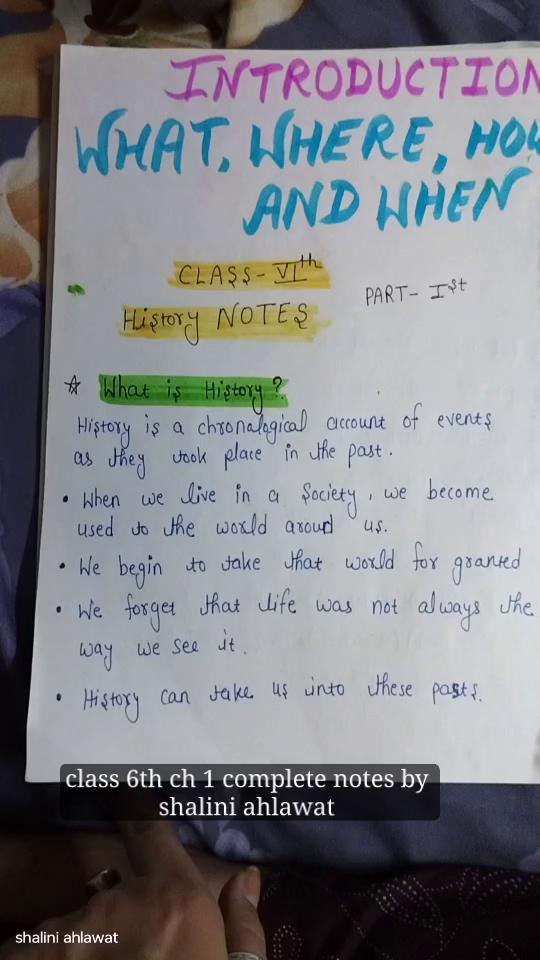 INTRODUCTION
WHAT, WHERE, HOW
AND WHEN
CLASS - VIth
PART - Ist
History NOTES
☆ What is History?
History is a chronalogical account of events
as they took place in the past.
• When we live in a Society, we become
used to the world aroud us.
• We begin to take that world for granted
• We forget that life was not always the
way we see it.
• History can take us into these pasts.
class 6th ch 1 complete notes by
shalini ahlawat
shalini ahlawat